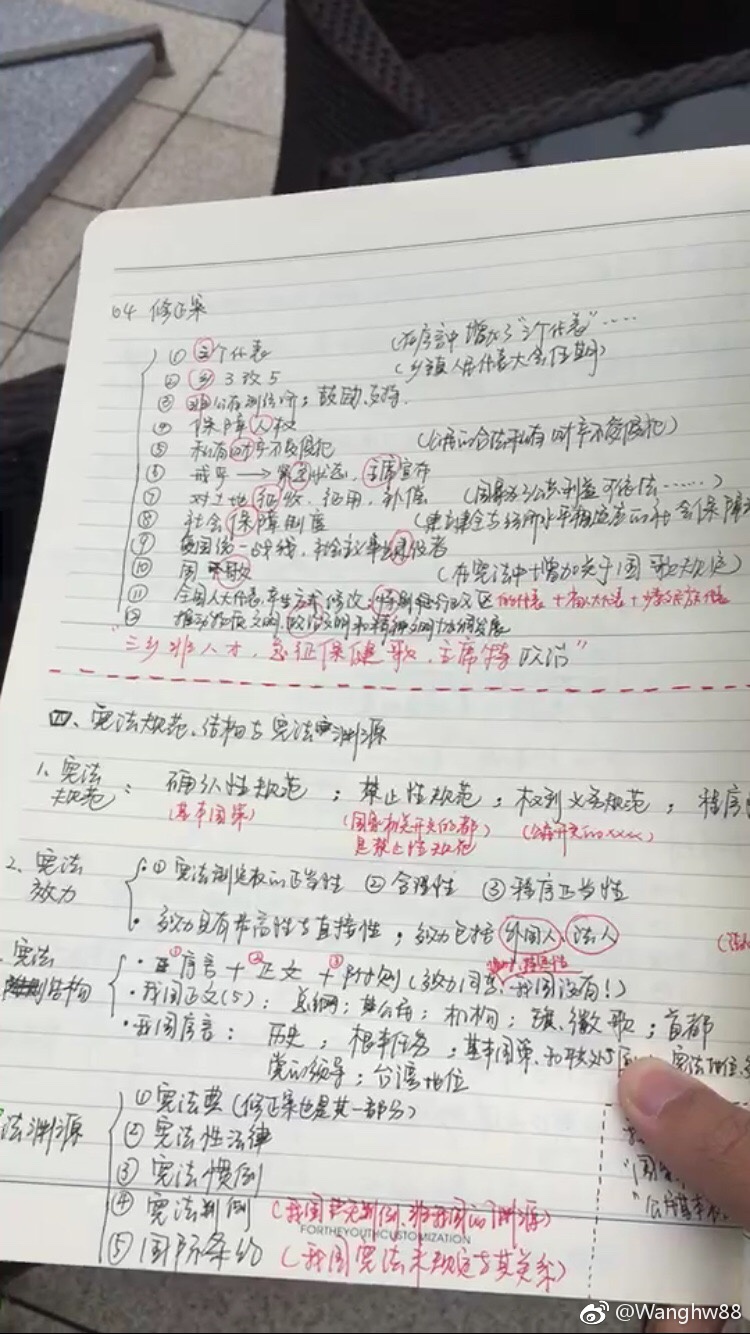 04 修正案
① 三个代表 (在序言中增加了"三个代表"……
② 乡3改5 (乡镇人民代表大会任期)
③ 非公有制经济：鼓励、支持.
④ 保障人权
⑤ 私有财产不受侵犯 (公民的合法私有财产不受侵犯)
⑥ 戒严 → 紧急状态，主席宣布
⑦ 对土地征收、征用、补偿 (国家为公共利益可依法……)
⑧ 社会保障制度 (建立健全与经济水平相适应的社会保障
⑨ 爱国统一战线，社会主义事业建设者
⑩ 国歌 (在宪法中增加关于国歌规定)
⑪ 全国人大代表产生方式修改：特别行政区
⑫ 推动物质文明、政治文明和精神文明协调发展
"三乡非人才，急征保健歌，主席特政治"
四、宪法规范、结构与宪法渊源
1、宪法规范：确认性规范；禁止性规范；权利义务规范；程序
(基本国策) (国家机关开头的都是禁止性规范) (公民开头的xxxx)
2、宪法效力
① 宪法制定权的正当性 ② 合理性 ③ 程序正当性
· 效力具有最高性与直接性；效力包括外国人、法人
宪法结构
· ①序言 + ②正文 + ③附则(效力同宪 我国没有!)
· 我国正文(5)：总纲；基公权；机构；旗、徽、歌；首都
· 我国序言：历史；根本任务；基本国策
党的领导；台湾地位
法渊源
① 宪法典(修正案也是其一部分)
② 宪法性法律
③ 宪法惯例
④ 宪法判例 (我国无判例、非我国的渊源)
FORTHEYOUTHCUSTOMIZATION
⑤ 国际条约 (我国宪法未规定与其关系)
@Wanghw88